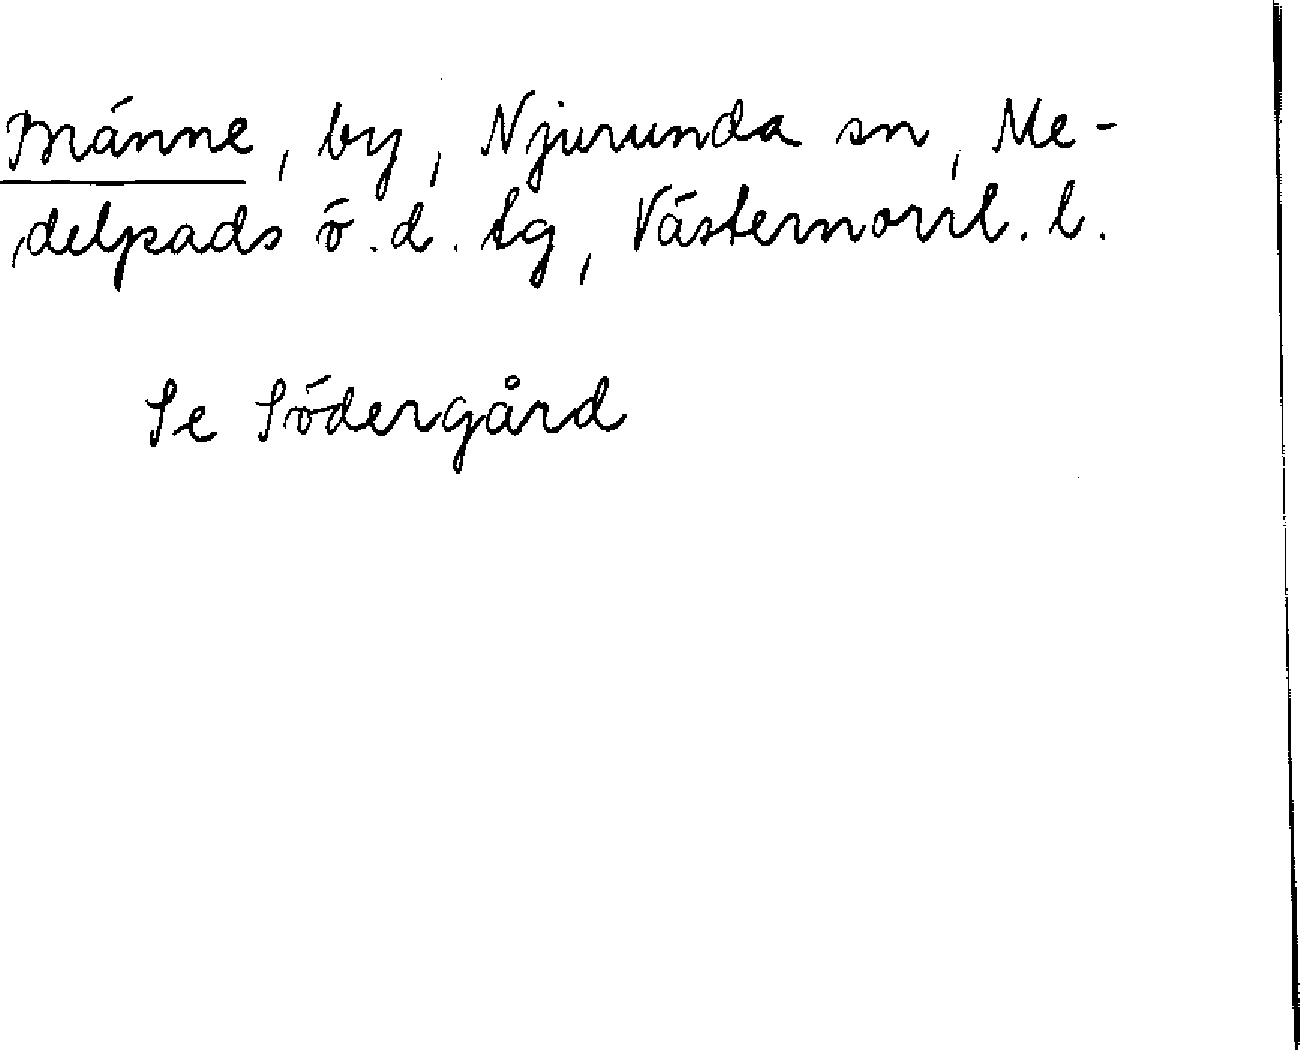 Männe, by, Njurunda sn, Me-
delpads ö.d. tg, Västernorrl. l.
Se Södergård